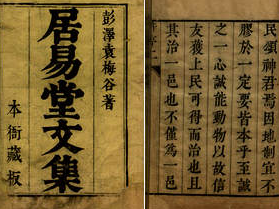 彭澤袁梅谷著
居易堂文集
本衙藏板
民頌神君焉因地制宜不
膠於一定要皆本乎至誠
之一心誠能動物以故信
友獲上民可得而治也且
其治一邑也不僅為一邑